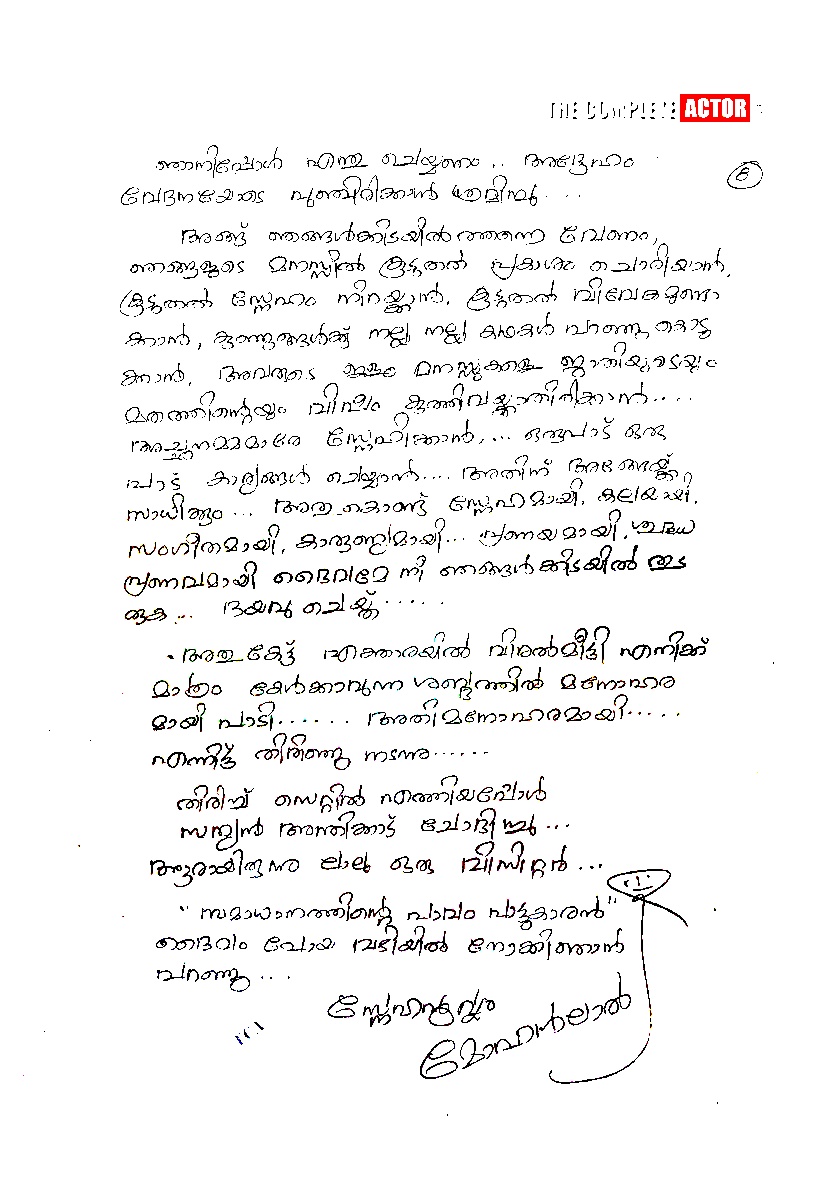 THE COMPLETE ACTOR
6
ഞാനിപ്പോൾ എന്തു ചെയ്യണം .. അദ്ദേഹം
വേദനയോടെ പുഞ്ചിരിക്കാൻ ശ്രമിച്ചു ....
അങ്ങ് ഞങ്ങൾക്കിടയിൽ ത്തന്നെ വേണം,
ഞങ്ങളുടെ മനസ്സിൽ കൂടുതൽ പ്രകാശം ചൊരിയാൻ,
കൂടുതൽ സ്നേഹം നിറയ്ക്കാൻ, കൂടുതൽ വിവേകമുണ്ടാ
ക്കാൻ, കുഞ്ഞുങ്ങൾക്ക് നല്ല നല്ല കഥകൾ പറഞ്ഞു കൊടു
ക്കാൻ, അവരുടെ മനസ്സുകളെ ജാതിയുടെയും
മതത്തിന്റെയും വിഷം കുത്തിവയ്ക്കാതിരിക്കാൻ....
അച്ഛനമ്മമാരെ സ്നേഹിക്കാൻ.... ഒരുപാട് ഒരു
പാട് കാര്യങ്ങൾ ചെയ്യാൻ.... അതിന് അങ്ങേയ്ക്കേ
സാധിക്കും ... അതുകൊണ്ട് സ്നേഹമായി, കലയായി,
സംഗീതമായി, കാരുണ്യമായി... പ്രണയമായി,
പ്രണവമായി ദൈവമേ നീ ഞങ്ങൾക്കിടയിൽ തുട
രുക ... ദയവു ചെയ്ത് .....
അതു കേട്ട് ഏക്താരയിൽ വിരൽമീട്ടി എനിക്ക്
മാത്രം കേൾക്കാവുന്ന ശബ്ദത്തിൽ മനോഹര
മായി പാടി...... അതിമനോഹരമായി.....
എന്നിട്ട് തിരിഞ്ഞു നടന്നു......
തിരിച്ച് സെറ്റിൽ എത്തിയപ്പോൾ
സത്യൻ അന്തിക്കാട് ചോദിച്ചു ...
ആരായിരുന്നു ലാലു ഒരു വിസിറ്റർ ...
"സമാധാനത്തിന്റെ പാവം പാട്ടുകാരൻ"
ദൈവം പോയ വഴിയിൽ നോക്കി ഞാൻ
പറഞ്ഞു ...
സ്നേഹപൂർവ്വം
മോഹൻലാൽ